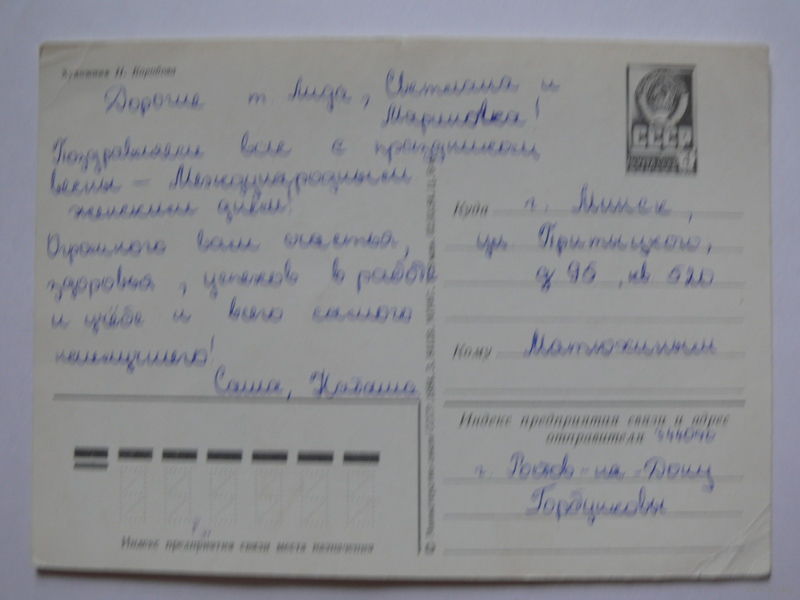 Художник Н. Коробова
Дорогие т. Лида, Светлана и
Маринка!
Поздравляем всех с праздником
весны – Международным
женским днём!
Огромного вам счастья,
здоровья, успехов в работе
и учёбе и всего самого
наилучшего!
Саша, Наташа
Индекс предприятия связи места назначения
СССР
Куда г. Минск,
ул. Притыцкого,
д 95, кв 520
Кому Матюхиным
Индекс предприятия связи и адрес
отправителя
г. Ростов-на-Дону
Горбуновы
© Министерство связи СССР.